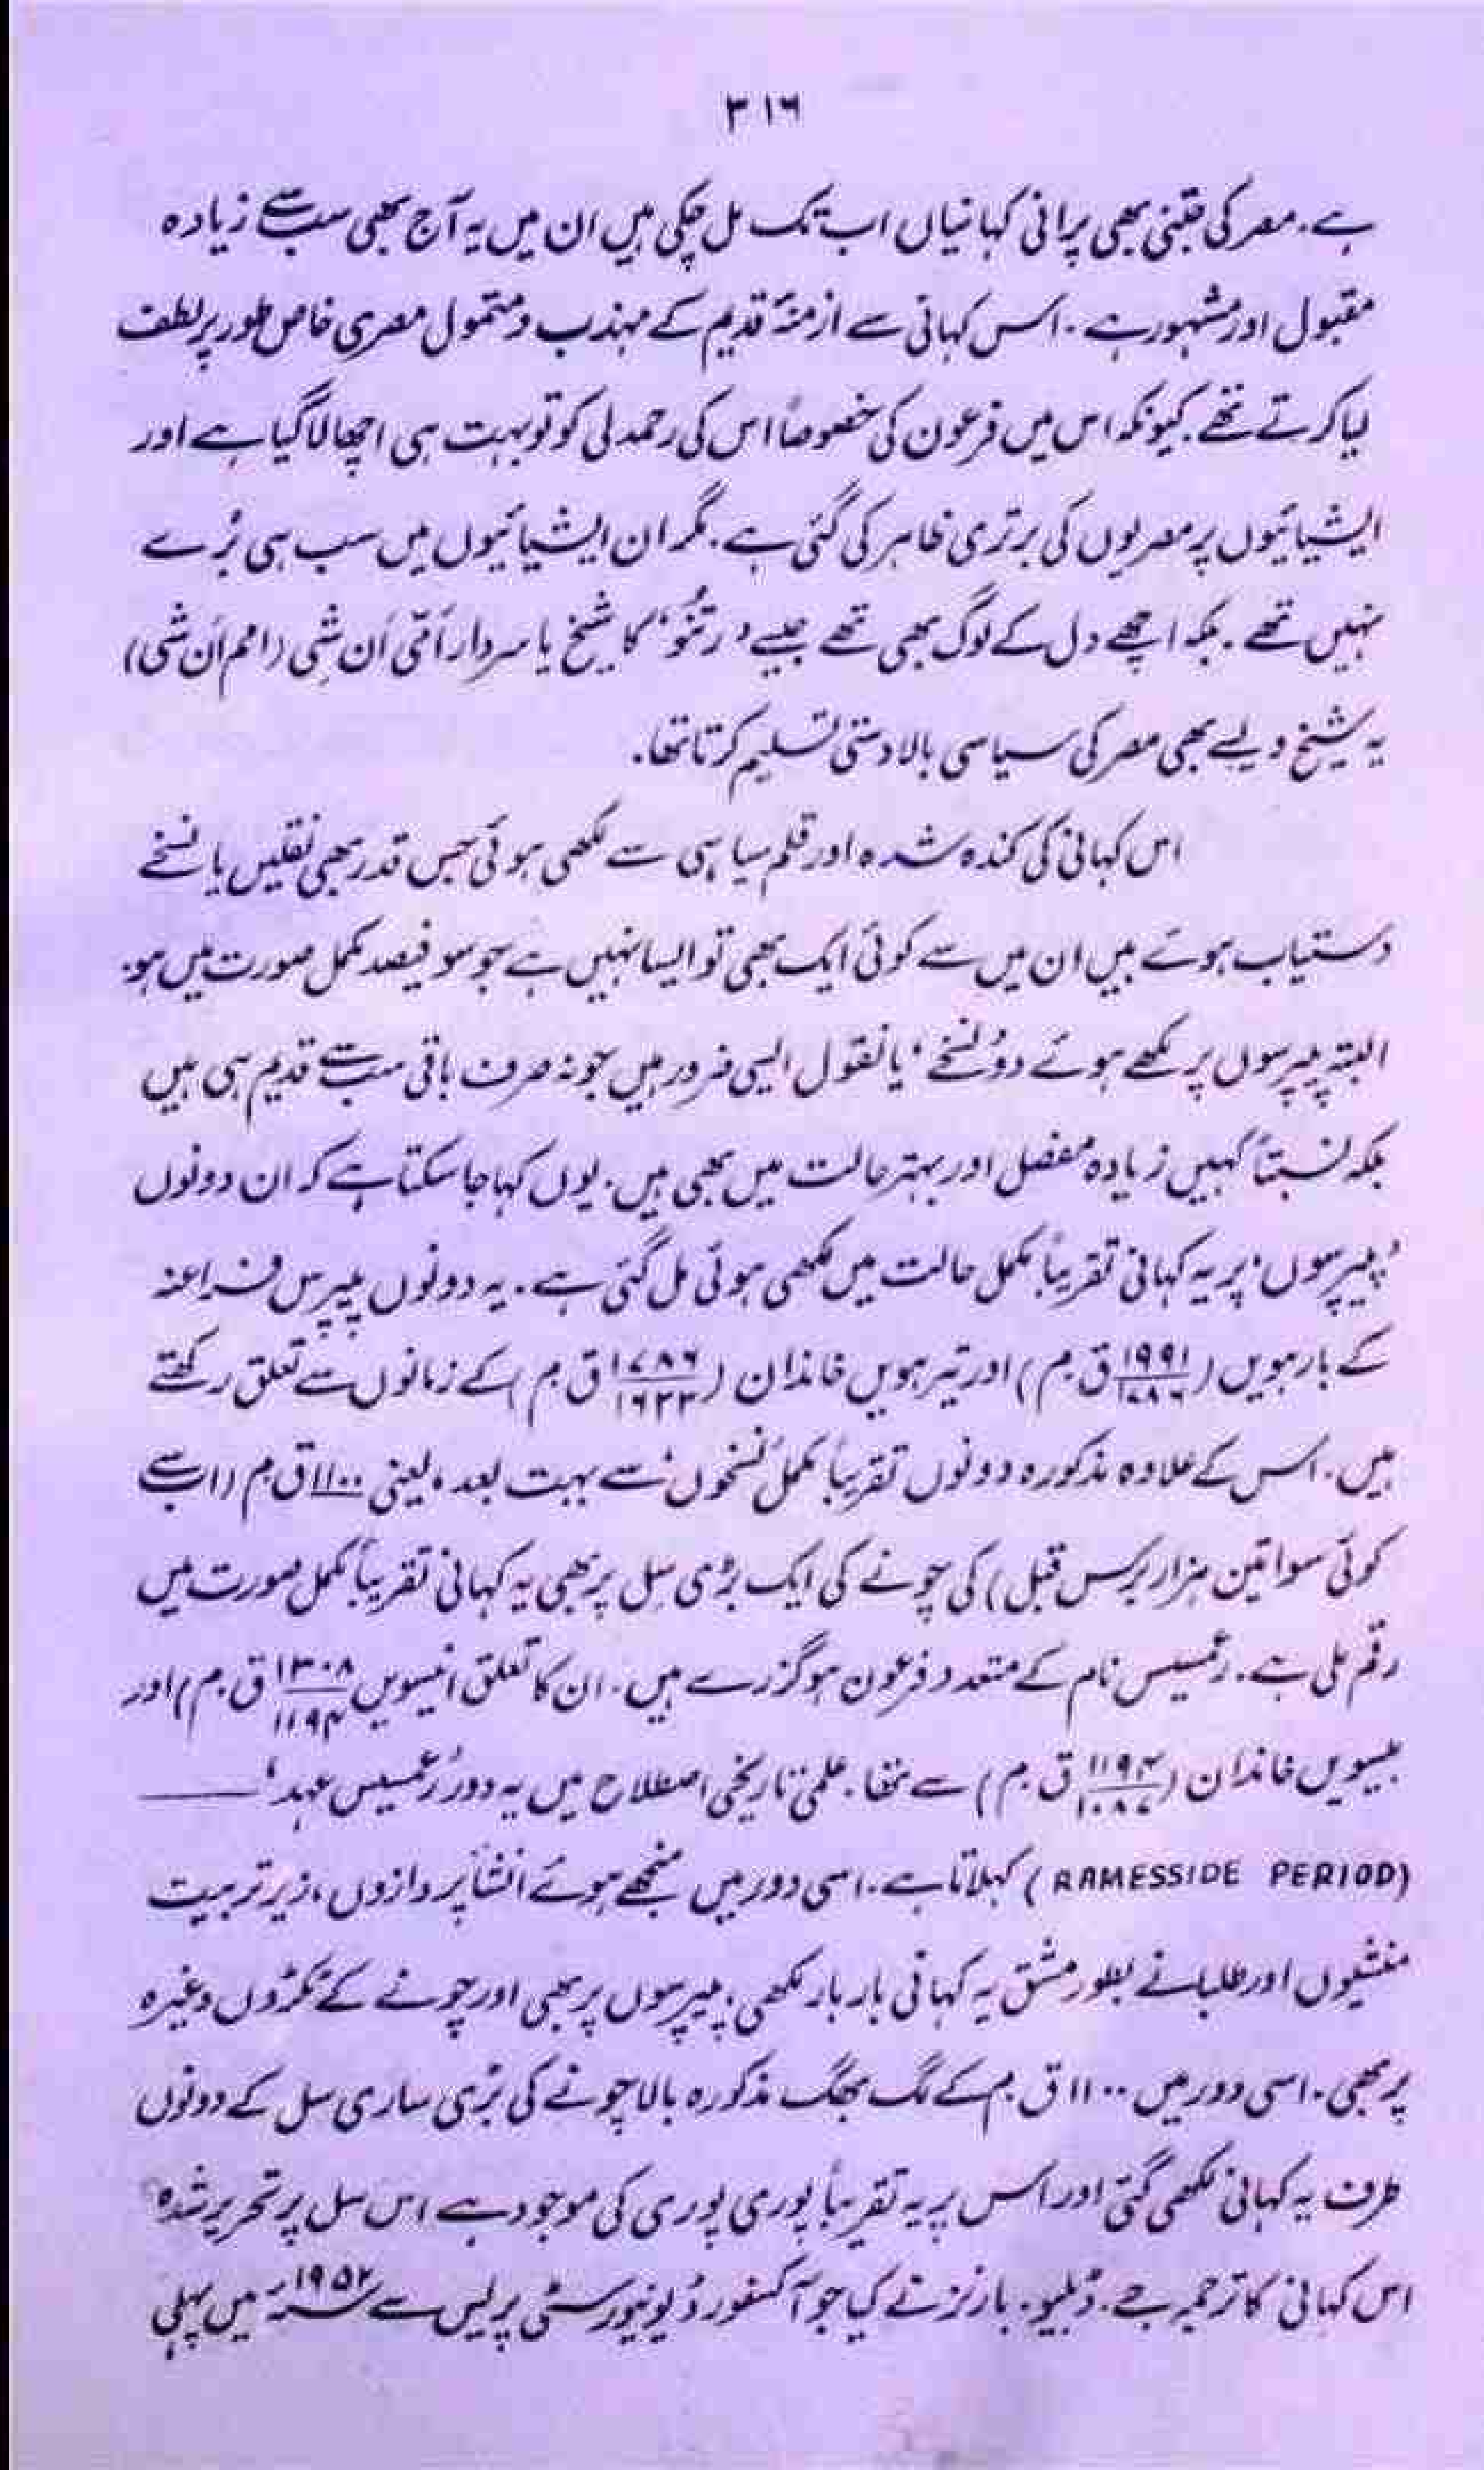 ۳۱۶
ہے۔ مصر کی جتنی بھی پرانی کہانیاں اب تک مل چکی ہیں ان میں یہ آج بھی سب سے زیادہ
مقبول اور مشہور ہے۔ اس کہانی سے ازمنۂ قدیم کے مہذب و متمول مصری خاص طور پر لطف
لیا کرتے تھے۔ کیونکہ اس میں فرعون کی خصوصاً اس کی رحمدلی کو تو بہت ہی اچھالا گیا ہے اور
ایشیائیوں پر مصریوں کی برتری ظاہر کی گئی ہے۔ مگر ان ایشیائیوں میں سب ہی بُرے
نہیں تھے۔ بلکہ اچھے دل کے لوگ بھی تھے جیسے ’رتنُو‘ کا شیخ یا سردار اَمّی اَن شی (امم اَن شی)
یہ شیخ ویسے بھی مصر کی سیاسی بالادستی تسلیم کرتا تھا۔
اس کہانی کی کندہ شدہ اور قلم سیاہی سے لکھی ہوئی جس قدر بھی نقلیں یا نسخے
دستیاب ہوئے ہیں ان میں سے کوئی ایک بھی تو ایسا نہیں ہے جو سو فیصد مکمل صورت میں ہو۔
البتہ پیپرسوں پر لکھے ہوئے دو ’نسخے‘ یا نقول ایسی ضرور ہیں جو نہ صرف باقی سب سے قدیم ہی ہیں
بلکہ نسبتاً کہیں زیادہ مفصل اور بہتر حالت میں بھی ہیں۔ یوں کہا جا سکتا ہے کہ ان دونوں
’پیپرسوں‘ پر یہ کہانی تقریباً مکمل حالت میں لکھی ہوئی مل گئی ہے۔ یہ دونوں پیپرس فراعنہ
کے بارہویں (۱۹۹۱/۱۷۸۶ ق۔م) اور تیرہویں خاندان (۱۷۸۶/۱۶۳۳ ق۔م) کے زمانوں سے تعلق رکھتے
ہیں۔ اس کے علاوہ مذکورہ دونوں تقریباً مکمل ’نسخوں‘ سے بہت بعد، یعنی ۱۱۰۰ ق م (اب سے
کوئی سوا تین ہزار برس قبل) کی چونے کی ایک بڑی سل پر بھی یہ کہانی تقریباً مکمل صورت میں
رقم ملی ہے۔ رعمسیس نام کے متعدد فرعون ہو گزرے ہیں۔ ان کا تعلق انیسویں ۱۳۰۸/۱۱۹۴ ق۔م) اور
بیسویں خاندان (۱۱۹۴/۱۰۸۷ ق۔م) سے تھا۔ علمی تاریخی اصطلاح میں یہ دور ’رعمسیس عہد‘ ——
(RAMESSIDE PERIOD) کہلاتا ہے۔ اسی دور میں منجھے ہوئے انشا پردازوں، زیر تربیت
منشیوں اور طلبا نے بطور مشق یہ کہانی بار بار لکھی، پیپرسوں پر بھی اور چونے کے ٹکڑوں وغیرہ
پر بھی۔ اسی دور میں ۱۱۰۰ ق۔م کے لگ بھگ مذکورہ بالا چونے کی بڑی ساری سل کے دونوں
طرف یہ کہانی لکھی گئی اور اس پر یہ تقریباً پوری پوری کی موجود ہے اس سل پر تحریر شدہ
اس کہانی کا ترجمہ جے۔ ڈبلیو۔ بارنز نے کیا جو آکسفورڈ یونیورسٹی پریس سے ۱۹۵۲ء میں پہلی